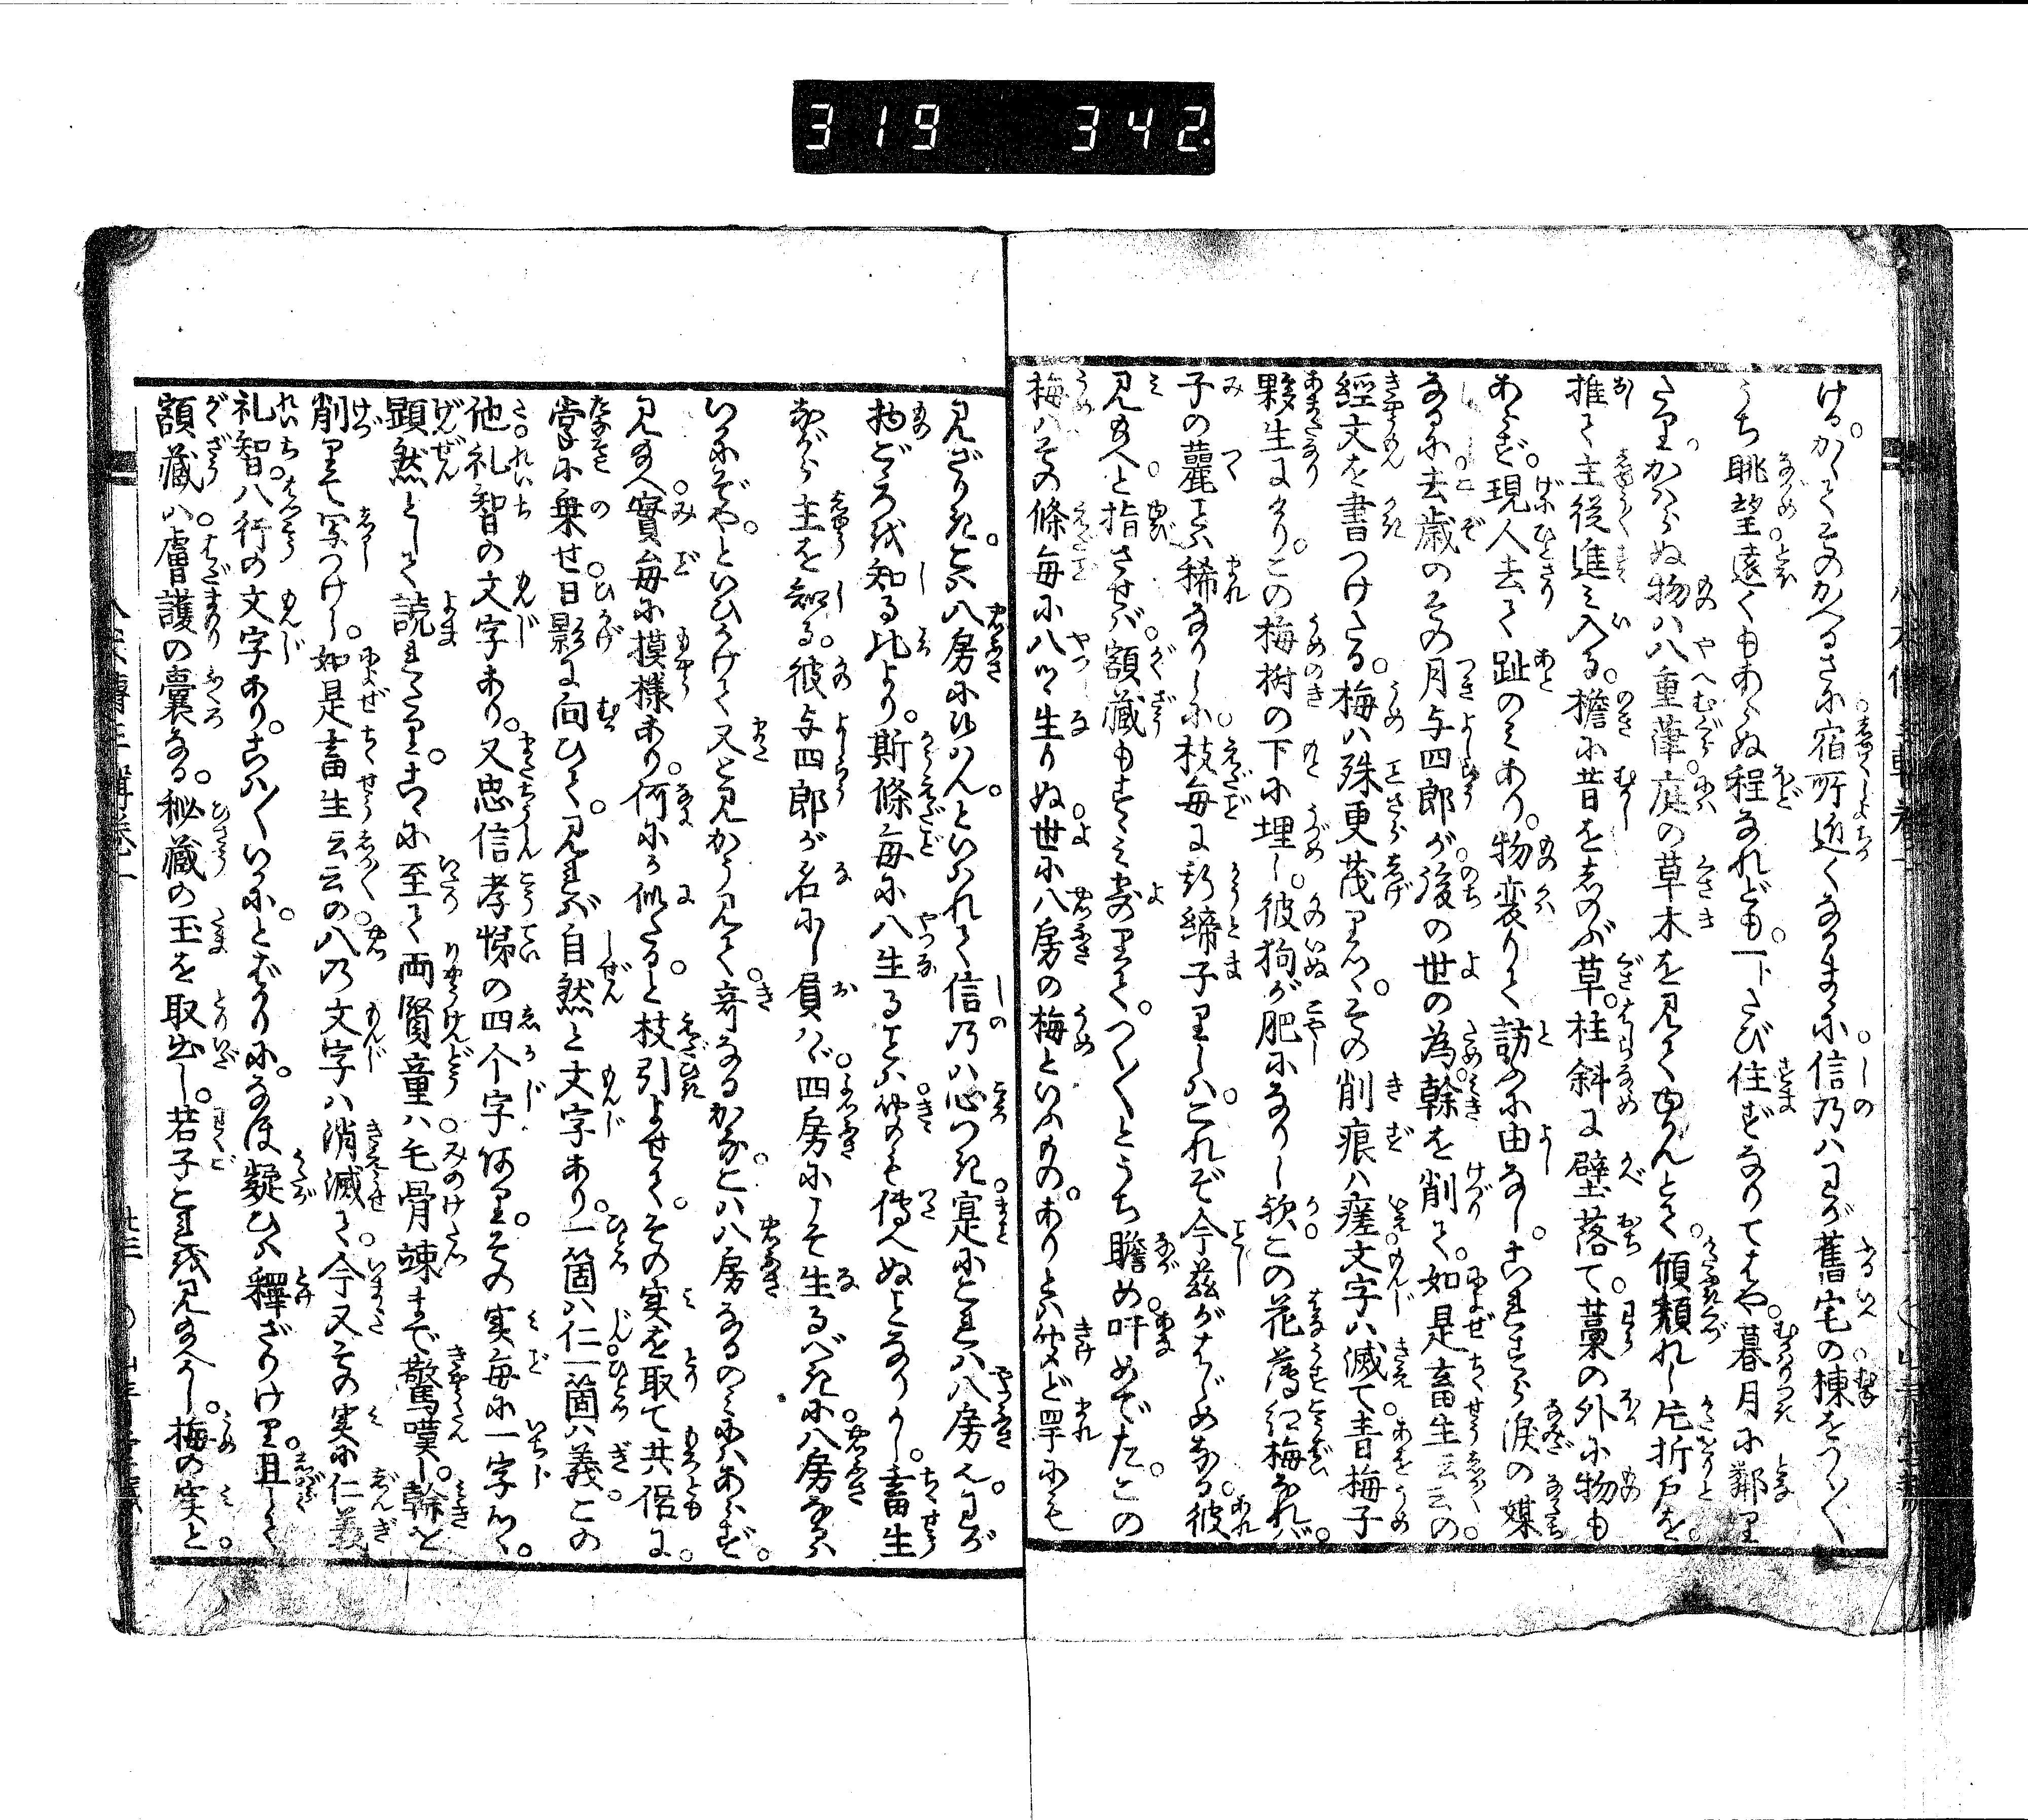 319 342.
ける。かくてそのかへるさに宿所近くなるまゝに。信乃はわが舊宅の棟をつく〴〵
うち眺望。遠くもあらぬ程なれども。一トたび住ずなりてはや。暮月に鄰り
たり。かはらぬ物は八重葎。庭の草木を見てゆかんとて。傾頽れし片折戸を。
推て主従進み入る。檐に昔をしのぶ草。柱斜に壁落て。藁の外に物も
あらず。現人去て趾のみあり。物変りて訪ふに由なし。これすら涙の媒
なるに。去歳のその月与四郎が。後の世の為。幹を削て。如是畜生云云の。
經文を書つけたる。梅は殊更茂りつゝ。その削痕は瘥。文字は滅て。青梅子
夥生にけり。この梅樹の下に埋し。彼狗が肥になりし歟。この花薄紅梅なれば。
子の蘿る事稀なりしに。枝毎に新締子りしは。これぞ今茲がはじめなる。彼
見給へと指させば。額藏もすゝみ寄りて。つく〴〵とうち瞻め。吁めでた。この
梅はその條毎に八ツ生りぬ。世に八房の梅といふもの。ありとは聞ど罕にも
見ざりき。とは八房に候はん。といはれて信乃は心つき。寔にとれば八房也。わが
物ごゝろ我知る比より。斯條毎に八生る事は。聞も傳へぬ事なりかし。畜生
ながら主を知る。彼与四郎が名にし負はゞ。四房にこそ生るべきに。八房なるは
いかにぞや。といひかけて又と見かう見て。奇なるかな。こは八房なるのみにはあらず。
見給へ。實毎に摸様あり。何にか似たる。と枝引よせて。その実を取て共侶に。
掌に乗せ。日影に向ひて。見れば自然と文字あり。一箇は仁。一箇は義。この
他礼智の文字あり。又忠信孝悌の四个字あり。その実毎に一字づゝ。
顕然として読れたり。こゝに至て両賢童は。毛骨竦まで驚嘆し。幹を
削りて写つけし。如是畜生云云の。八の文字は消滅て。今又その実に仁義
礼智。八行の文字あり。こはいかに。とばかりに。なほ疑ひは釋ざりけり。且して
額藏は。膚護の嚢なる。秘藏の玉を取出し。若子とれを見給へかし。梅の実と。